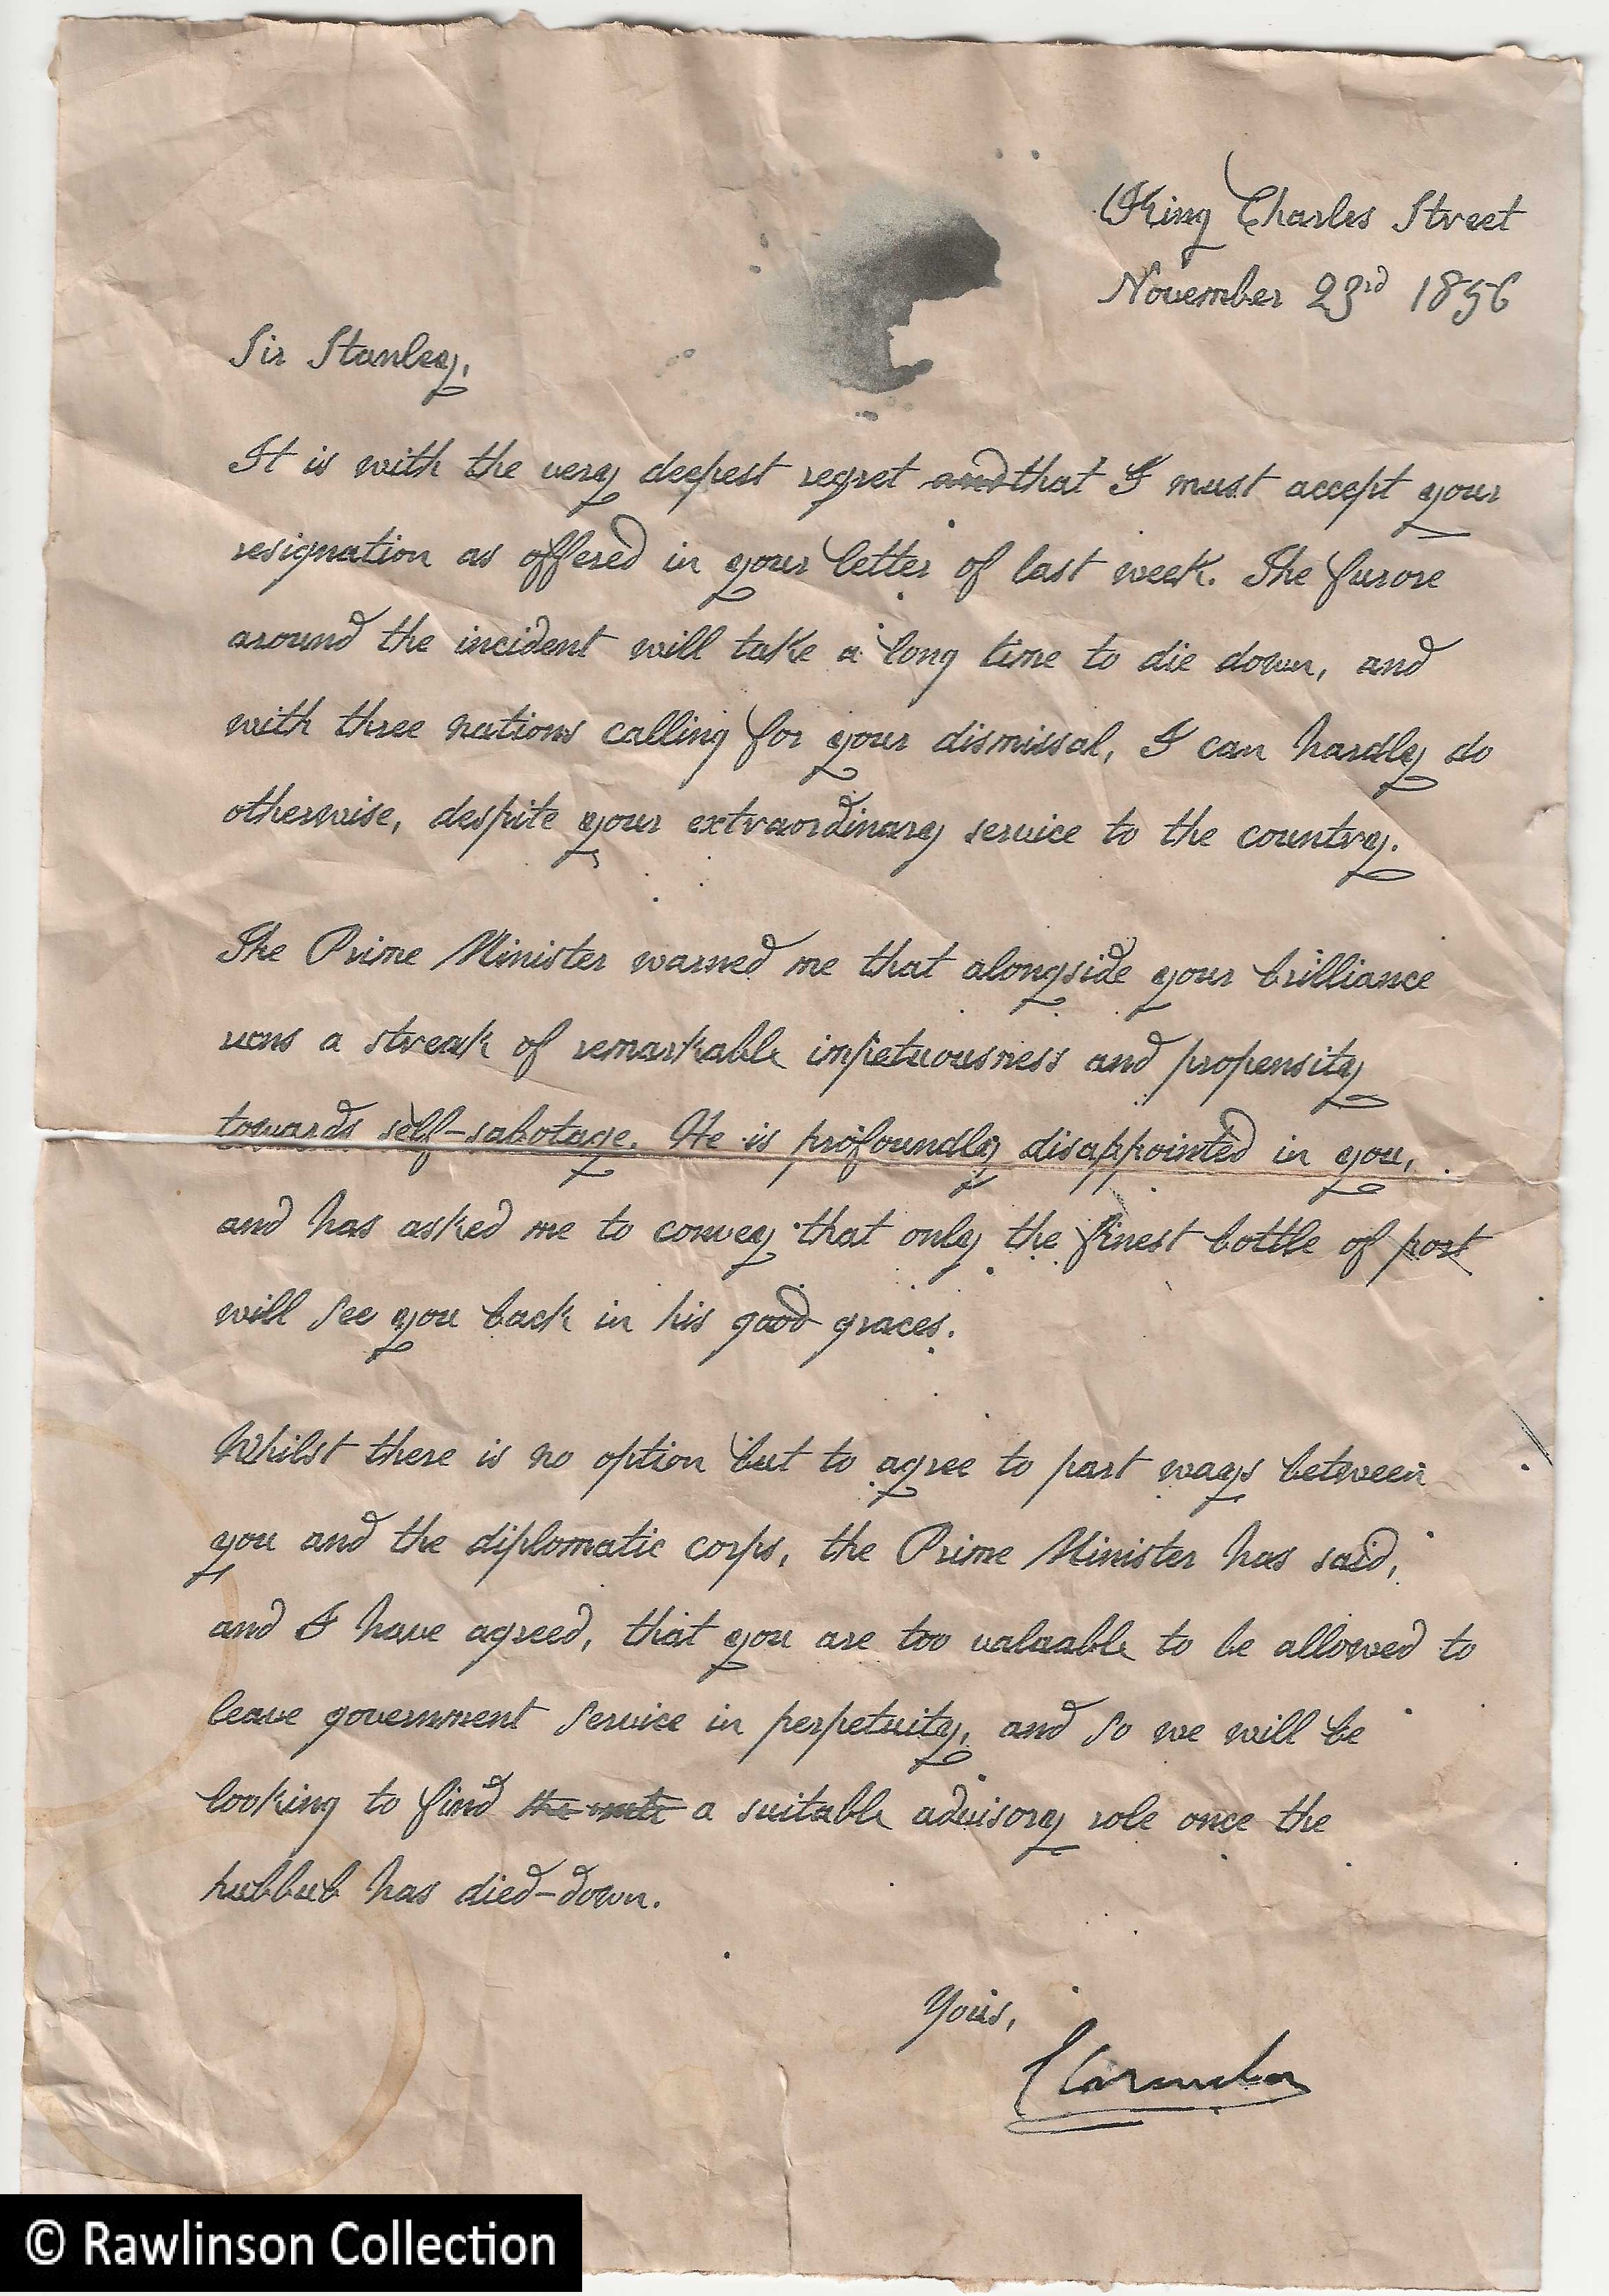 King Charles Street
November 23rd 1856
Sir Stanley,
It is with the very deepest regret and that I must accept your
resignation as offered in your letter of last week. The furore
around the incident will take a long time to die down, and
with three nations calling for your dismissal, I can hardly do
otherwise, despite your extraordinary service to the country.
The Prime Minister warned me that alongside your brilliance
runs a streak of remarkable impetuousness and propensity
towards self-sabotage. He is profoundly disappointed in you,
and has asked me to convey that only the finest bottle of port
will see you back in his good graces.
Whilst there is no option but to agree to part ways between
you and the diplomatic corps, the Prime Minister has said,
and I have agreed, that you are too valuable to be allowed to
leave government service in perpetuity, and so we will be
looking to find a suitable advisory role once the
hubbub has died-down.
Yours,
© Rawlinson Collection